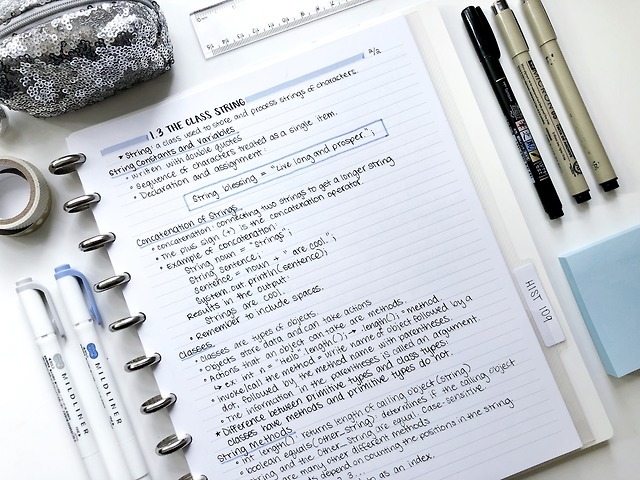 2/2
1.3 THE CLASS STRING
* String: a class used to store and process strings of characters.
String Constants and Variables
• written with double quotes
• Sequence of characters treated as a single item.
• Declaration and assignment:
String blessing = "Live long and prosper.";
Concatenation of Strings
• concatenation: connecting two strings to get a longer string
• The plus sign (+) is the concatenation operator.
• Example of concatenation:
String noun = "Strings";
String sentence;
sentence = noun + " are cool.";
System.out.println(sentence);
Results in the output:
Strings are cool.
• Remember to include spaces.
Classes
• Classes are types of objects.
• Objects store data and can take actions
• Actions that an object can take are methods.
↳ ex: int n = "Hello".length(); → length(); = method.
• Invoke/call the method = write name of object followed by a
dot, followed by the method name with parentheses.
• The information in the parentheses is called an argument.
* Difference between primitive types and class types:
classes have methods and primitive types do not.
String methods
• int length(): returns length of calling object (string)
• boolean equals(Other_String): determines if the calling object
string and the Other_String are equal. Case-sensitive.
are many other different methods
depend on counting the positions in the string
as an index.
HIST 109
MIDLINER
MIDLINER